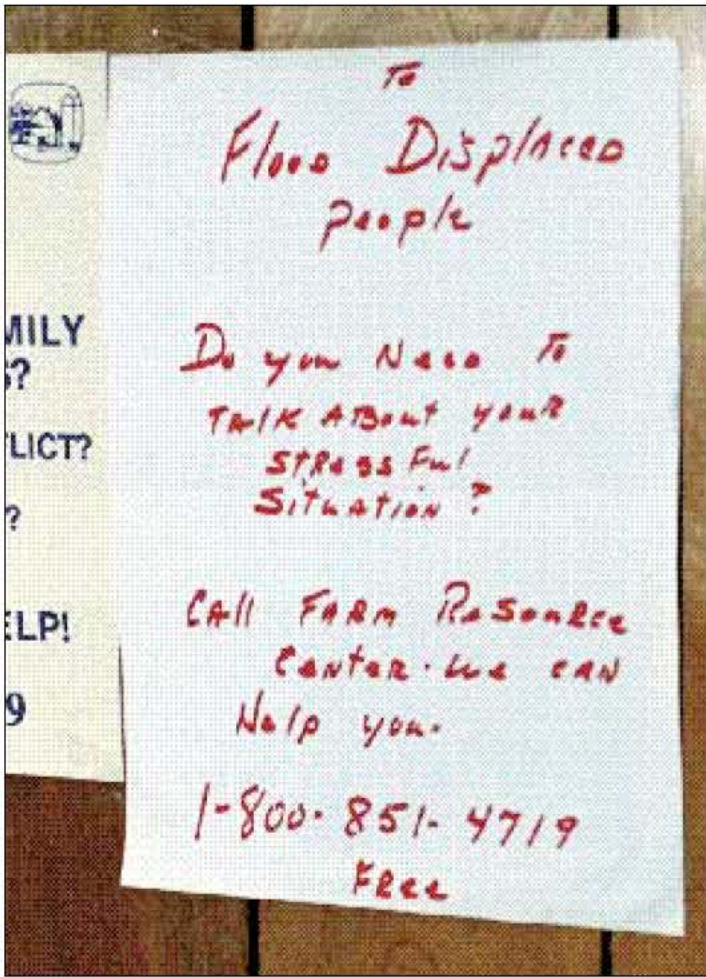 MILY
S?
LICT?
?
ELP!
9
To
Flood Displaced
people
Do you Need To
TALK ABout your
STRessFul
SITuATION?
CAll FARM ResouRce
CenteR. we CAN
Help you.
1-800-851-4719
FRee